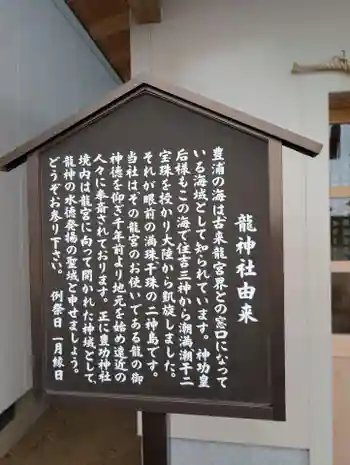 龍神社由来
豊浦の海は古来龍宮界との窓口になって
いる海域として知られています。神功皇
后様もこの海で住吉三神から潮満潮干二
宝珠を授かり大陸から凱旋しました。
それが眼前の満珠干珠の二神島です。
当社はその龍宮のお使いである龍の御
神徳を仰ぎ千年前より地元を始め遠近の
人々に奉斎されております。正に豊功神社
境内は龍宮に向って開かれた神域として、
龍神の水徳発揚の聖域と申せましょう。
どうぞお参り下さい。 例祭日 一月縁日